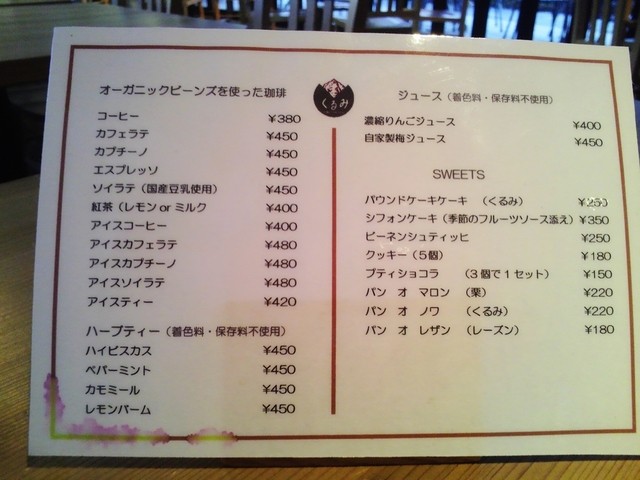 オーガニックビーンズを使った珈琲
コーヒー ¥380
カフェラテ ¥450
カプチーノ ¥450
エスプレッソ ¥450
ソイラテ（国産豆乳使用） ¥450
紅茶（レモン or ミルク ¥400
アイスコーヒー ¥400
アイスカフェラテ ¥480
アイスカプチーノ ¥480
アイスソイラテ ¥480
アイスティー ¥420
ハーブティー（着色料・保存料不使用）
ハイビスカス ¥450
ペパーミント ¥450
カモミール ¥450
レモンバーム ¥450
くるみ
ジュース（着色料・保存料不使用）
濃縮りんごジュース ¥400
自家製梅ジュース ¥450
SWEETS
パウンドケーキケーキ （くるみ） ¥250
シフォンケーキ（季節のフルーツソース添え） ¥350
ビーネンシュティッヒ ¥250
クッキー（５個） ¥180
プティショコラ （３個で１セット） ¥150
パン オ マロン （栗） ¥220
パン オ ノワ （くるみ） ¥220
パン オ レザン （レーズン） ¥180